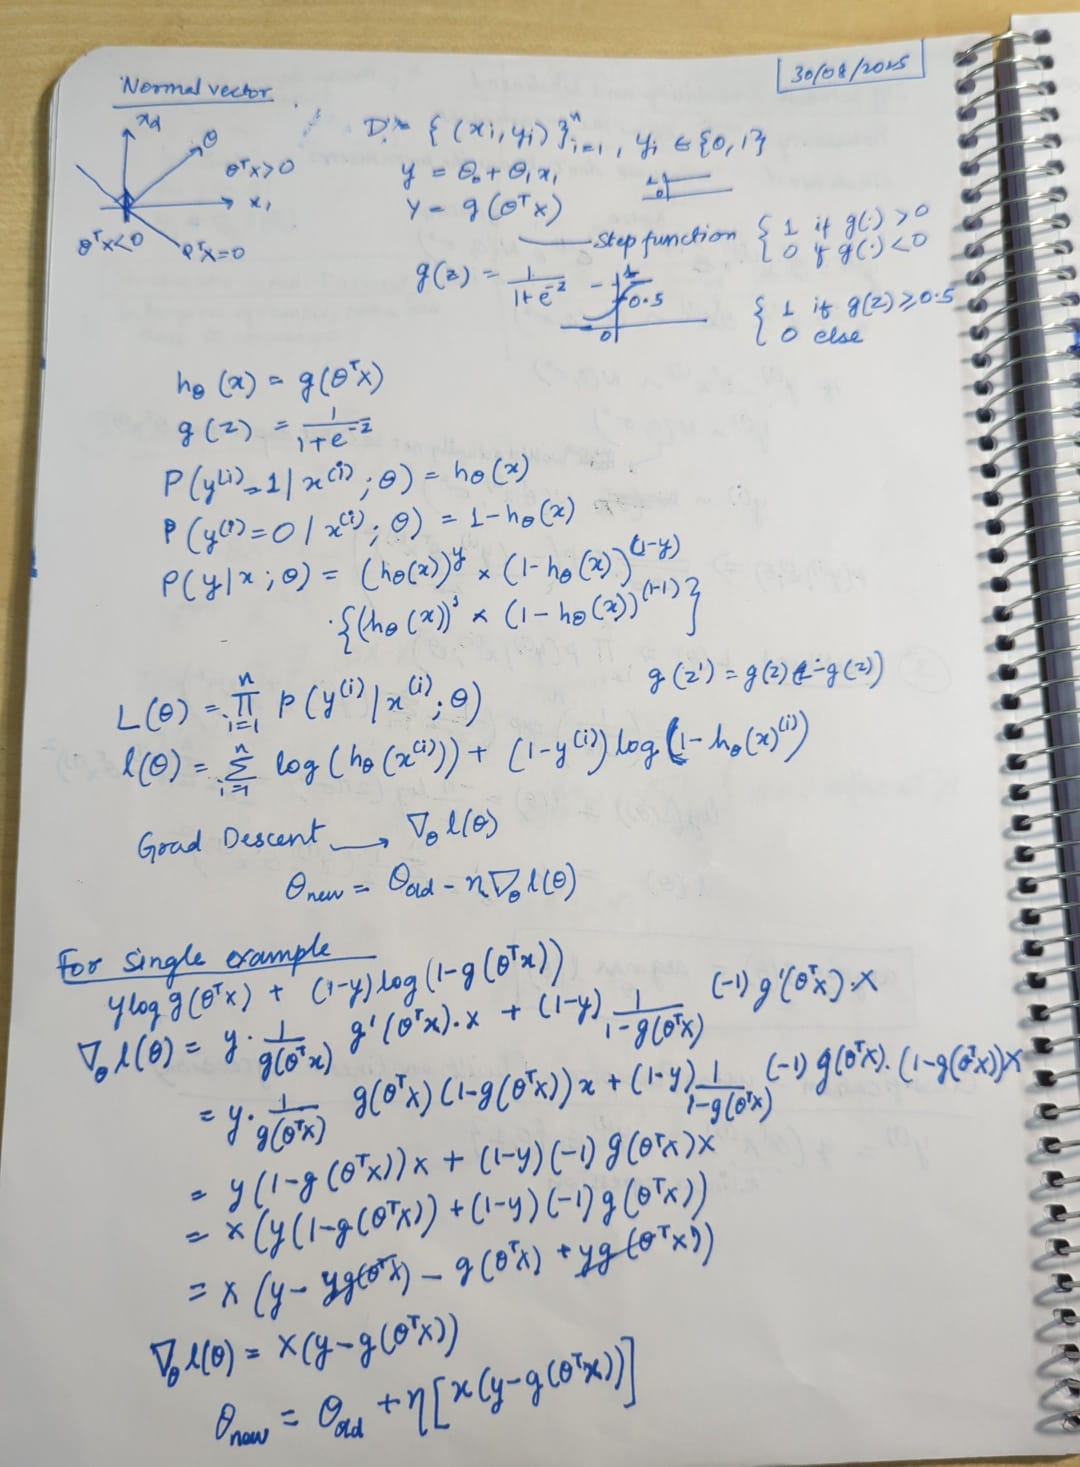 30/08/2025
Normal vector
x₂
θ
θᵀx>0
x₁
θᵀx<0
θᵀx=0
D = { (xi, yi) }ⁿi=1 , yi ∈ {0, 1}
y = θ₀ + θ₁x₁
1
0
Y = g(θᵀx)
Step function { 1 if g(.) > 0
0 if g(.) < 0
g(z) = 1/(1+e⁻ᶻ)
1
0.5
0
{ 1 if g(z) ≥ 0.5
0 else
hθ(x) = g(θᵀx)
g(z) = 1/(1+e⁻ᶻ)
P(y⁽ⁱ⁾=1 | x⁽ⁱ⁾; θ) = hθ(x)
P(y⁽ⁱ⁾=0 | x⁽ⁱ⁾; θ) = 1-hθ(x)
P(y|x; θ) = (hθ(x))^y × (1-hθ(x))^(1-y)
{(hθ(x))¹ × (1-hθ(x))^(1-1)}
g(z') = g(z)(1-g(z))
L(θ) = ∏ⁿi=1 P(y⁽ⁱ⁾|x⁽ⁱ⁾; θ)
l(θ) = Σⁿi=1 log(hθ(x⁽ⁱ⁾)) + (1-y⁽ⁱ⁾) log(1-hθ(x)⁽ⁱ⁾)
Grad Descent → ∇θ l(θ)
θnew = θold - η∇θ l(θ)
For single example
ylog g(θᵀx) + (1-y)log(1-g(θᵀx))
∇θ l(θ) = y · 1/g(θᵀx) g'(θᵀx).x + (1-y) 1/(1-g(θᵀx)) (-1) g'(θᵀx).x
= y · 1/g(θᵀx) g(θᵀx)(1-g(θᵀx))x + (1-y) 1/(1-g(θᵀx)) (-1) g(θᵀx).(1-g(θᵀx))x
= y(1-g(θᵀx))x + (1-y)(-1)g(θᵀx)x
= x(y(1-g(θᵀx)) + (1-y)(-1)g(θᵀx))
= x(y - yg(θᵀx) - g(θᵀx) + yg(θᵀx))
∇θ l(θ) = x(y-g(θᵀx))
θnew = θold + η[x(y-g(θᵀx))]